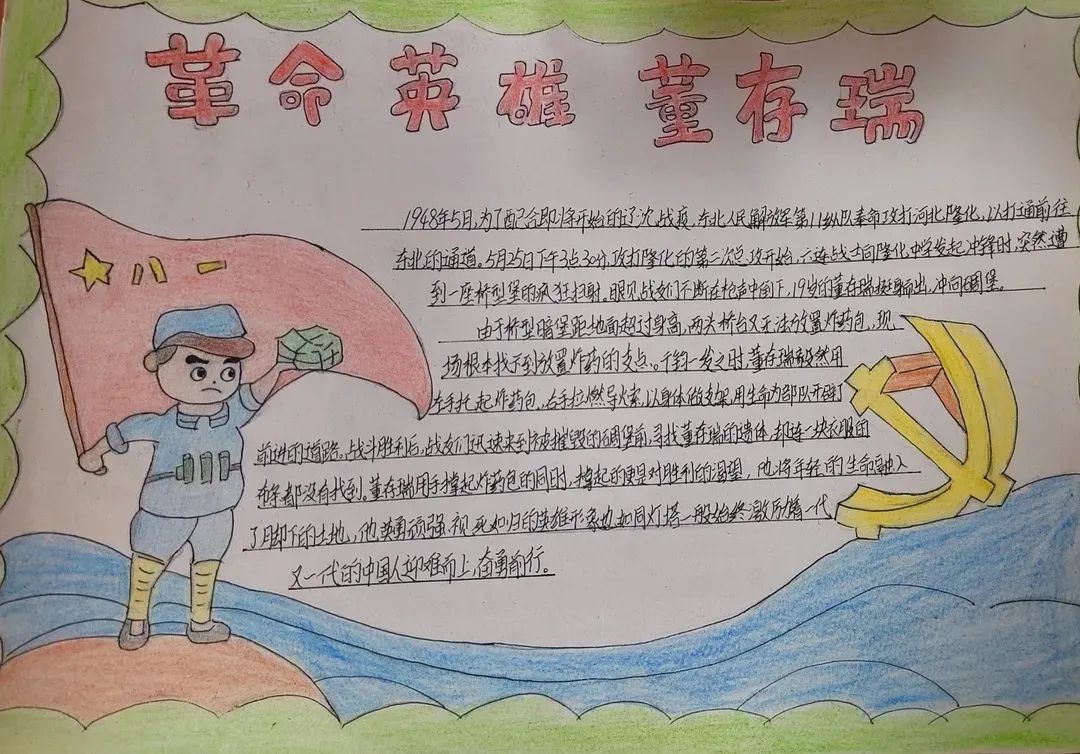 革命英雄 董存瑞
八一
1948年5月,为了配合即将开始的辽沈战疫,东北人民解放军第11纵队奉命攻打河北隆化,以打通前往
东北的通道。5月25日下午3点30分,攻打隆化的第二次总攻开始,六连战士向隆化中学发起冲锋时,突然遭
到一座桥型堡的疯狂扫射。眼见战友们不断在枪声中倒下,19岁的董存瑞挺身而出,冲向碉堡。
由于桥型暗堡距地面超过身高,两头桥台又无法放置炸药包,现
场根本找不到放置炸药的支点。千钧一发之时,董存瑞毅然用
左手托起炸药包,右手拉燃导火索,以身体做支架,用生命为部队开辟了
前进的道路。战斗胜利后,战友们迅速来到被摧毁的碉堡前寻找董存瑞的遗体,却连一块衣服的
布条都没有找到。董存瑞用手撑起炸药包的同时,撑起的更是对胜利的渴望,他将年轻的生命融入
了脚下的土地,他英勇顽强、视死如归的英雄形象也如同灯塔一般始终激励着一代
又一代的中国人迎难而上,奋勇前行。